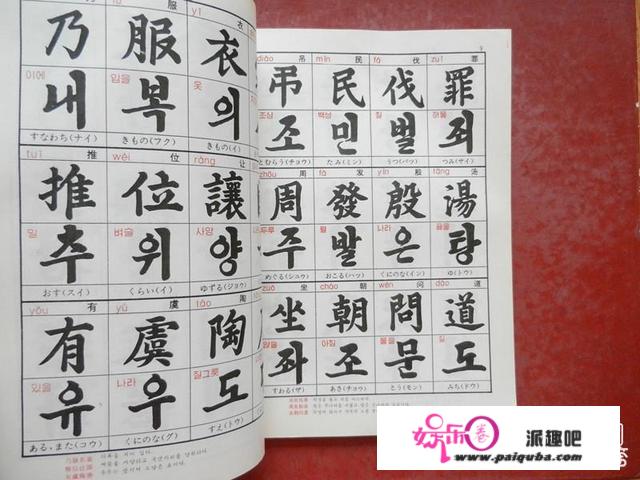 服 yī 衣
乃 服 衣
이에 입을 옷
내 복 의
すなわち(ナイ) きもの(フク) きもの(イ)
tuī 推 wèi 位 ràng 让
推 位 讓
밀 벼슬 사양
추 위 양
おす(スイ) くらい(イ) ゆずる(ジョウ)
yǒu 有 yú 虞 táo 陶
有 虞 陶
있을 나라 질그릇
유 우 도
ある,また(コウ) くにのな(グ) すえ(トウ)
9
diào 吊 mín 民 fá 伐 zuì 罪
弔 民 伐 罪
조상 백성 칠 허물
조 민 벌 죄
とむらう(チョウ) たみ(ミン) うつ(バツ) つみ(サイ)
zhōu 周 fā 发 yīn 殷 tāng 汤
周 發 殷 湯
두루 필 나라 끓을
주 발 은 탕
めぐる(シュウ) おこる(ハツ) くにのな(イン) ゆ(トウ)
zuò 坐 cháo 朝 wèn 问 dào 道
坐 朝 問 道
앉을 아침 물을 길
좌 조 문 도
すわる(ザ) あさ(チョウ) とう(モン) みち(ドウ)
娱乐圈 派趣吧
www.paiquba.com